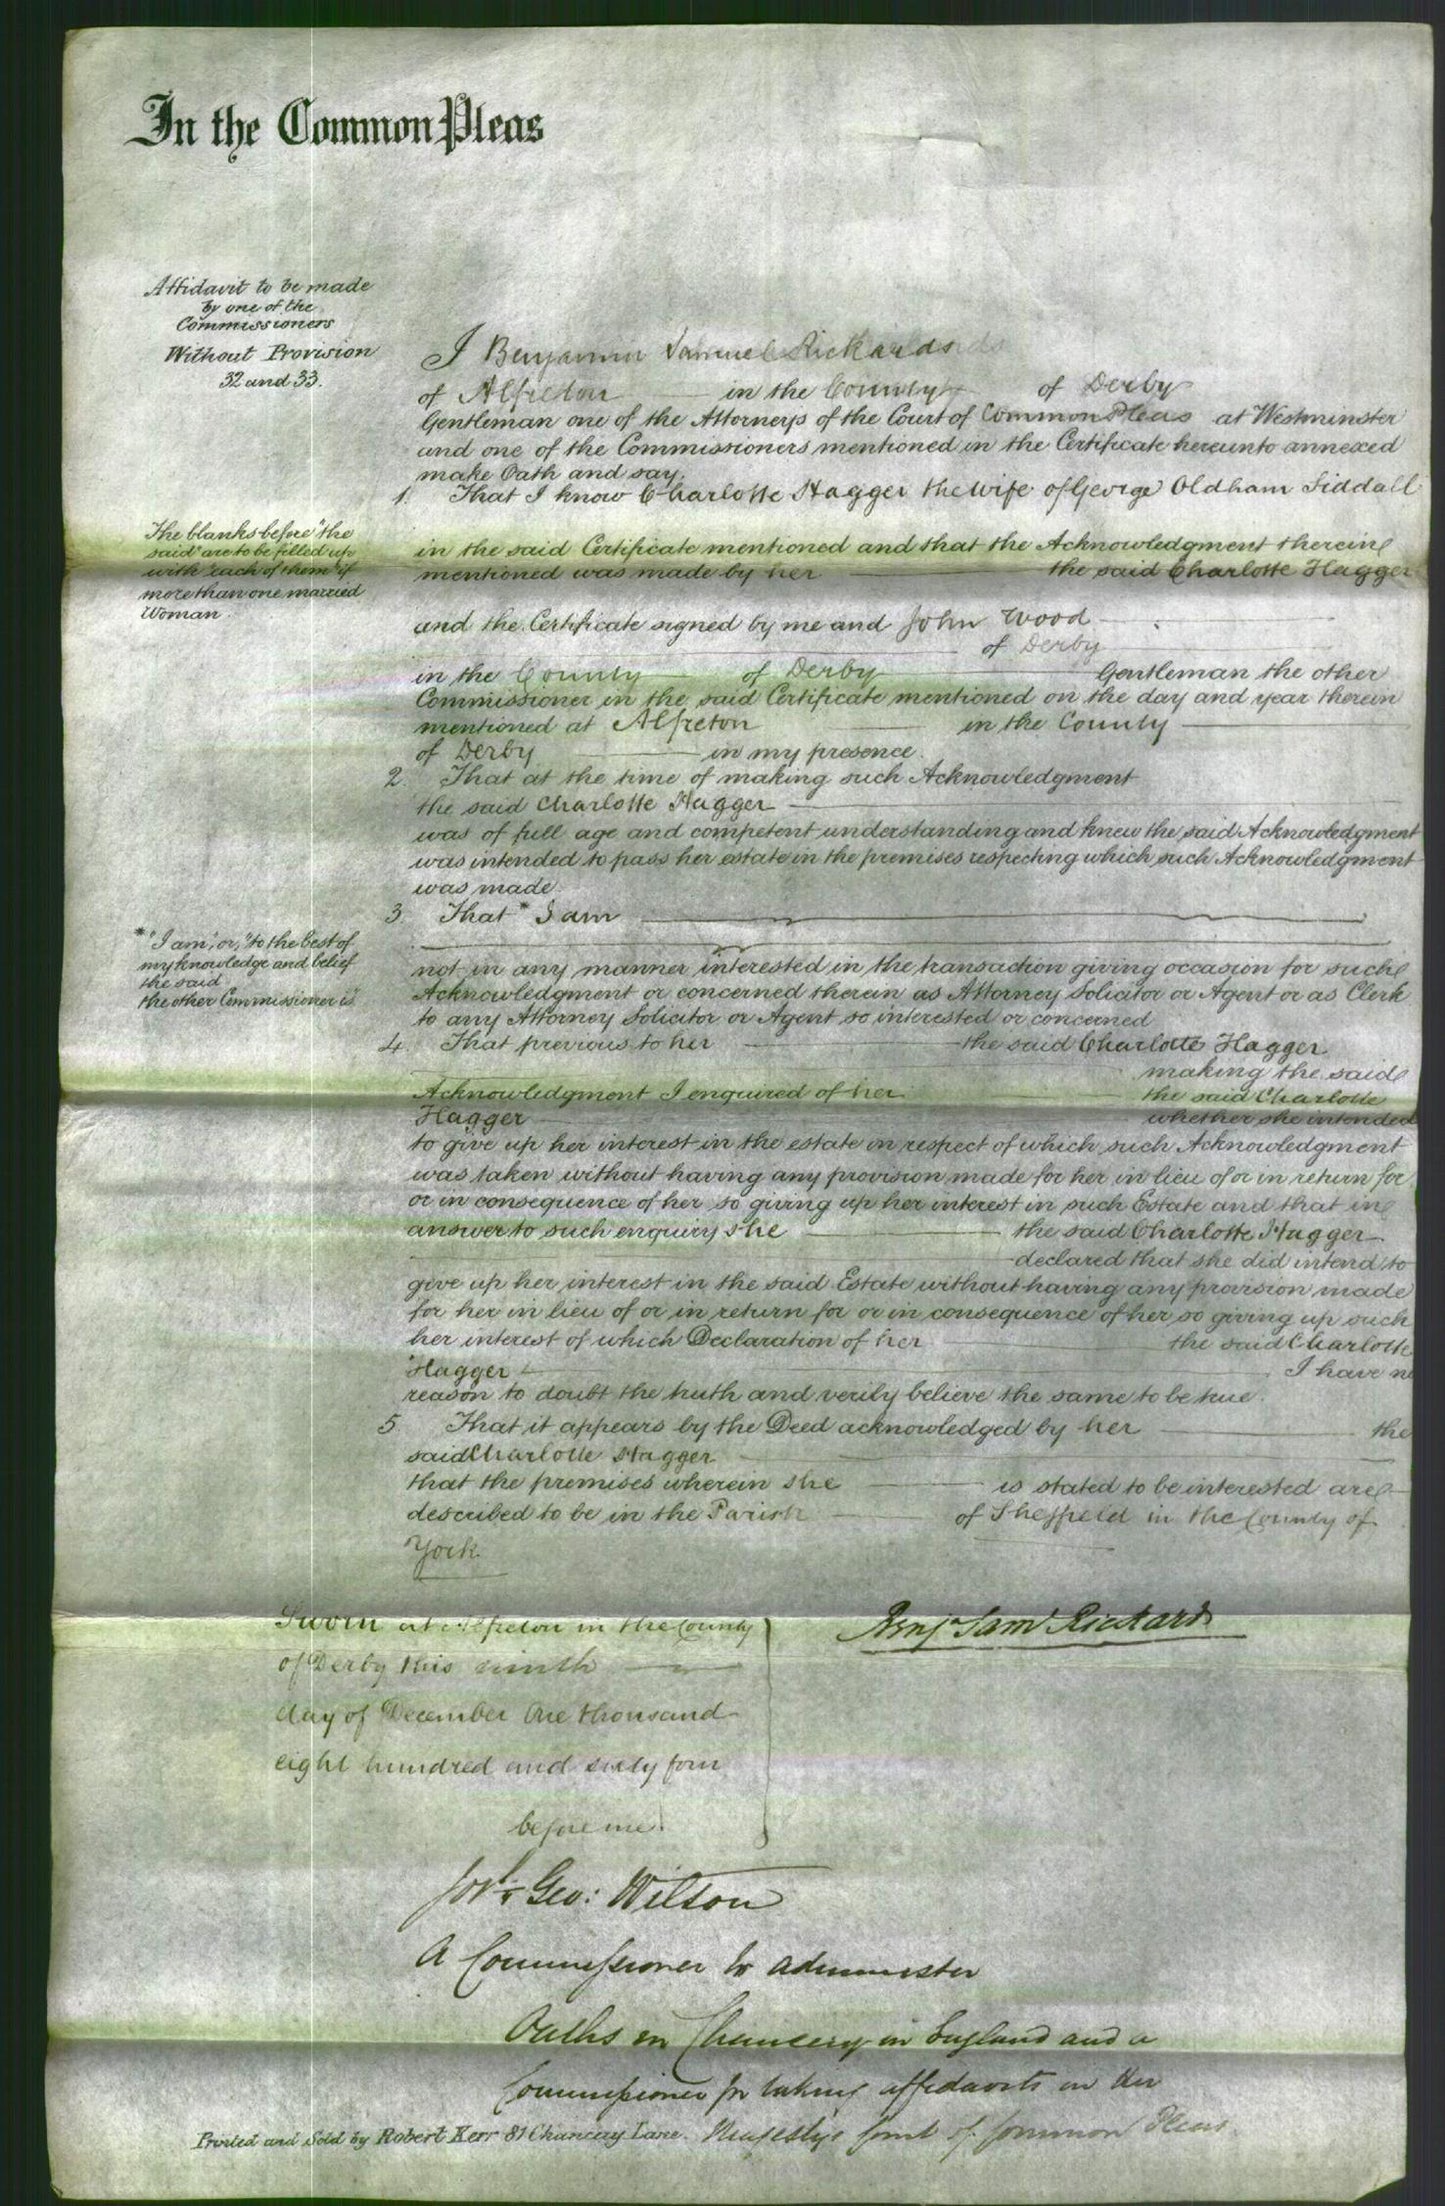 In the Common Pleas
Affidavit to be made
by one of the
Commissioners
Without Provision
32 and 33.
I Benjamin Samuel Rickards
of Alfreton in the County of Derby
Gentleman one of the Attorneys of the Court of Common Pleas at Westminster
and one of the Commissioners mentioned in the Certificate hereunto annexed
make Oath and say.
1. That I know Charlotte Hagger the wife of George Oldham Siddall
The blanks before "the
said" are to be filled up
with "each of them" if
more than one married
Woman.
in the said Certificate mentioned and that the Acknowledgment therein
mentioned was made by her the said Charlotte Hagger
and the Certificate signed by me and John Wood
of Derby
in the County of Derby Gentleman the other
Commissioner in the said Certificate mentioned on the day and year therein
mentioned at Alfreton in the County
of Derby in my presence.
2. That at the time of making such Acknowledgment
the said Charlotte Hagger
was of full age and competent understanding and knew the said Acknowledgment
was intended to pass her estate in the premises respecting which such Acknowledgment
was made.
3. That * I am
* "I am", or, "to the best of
my knowledge and belief
the said
the other Commissioner is"
not in any manner interested in the transaction giving occasion for such
Acknowledgment or concerned therein as Attorney Solicitor or Agent or as Clerk
to any Attorney Solicitor or Agent so interested or concerned
4. That previous to her the said Charlotte Hagger
making the said
Acknowledgment I enquired of her the said Charlotte
Hagger whether she intended
to give up her interest in the estate in respect of which such Acknowledgment
was taken without having any provision made for her in lieu of or in return for
or in consequence of her so giving up her interest in such Estate and that in
answer to such enquiry she the said Charlotte Hagger
declared that she did intend to
give up her interest in the said Estate without having any provision made
for her in lieu of or in return for or in consequence of her so giving up such
her interest of which Declaration of her the said Charlotte
Hagger I have no
reason to doubt the truth and verily believe the same to be true.
5. That it appears by the Deed acknowledged by her the
said Charlotte Hagger
that the premises wherein she is stated to be interested are
described to be in the Parish of Sheffield in the County of
York
Sworn at Alfreton in the County
of Derby this ninth
day of December One thousand
eight hundred and sixty four
before me
Benj Saml Rickards
Geo: Wilson
A Commissioner to administer
Oaths in Chancery in England and a
Commissioner for taking affidavits in Her
Majestys Court of Common Pleas.
Printed and Sold by Robert Kerr 81 Chancery Lane.